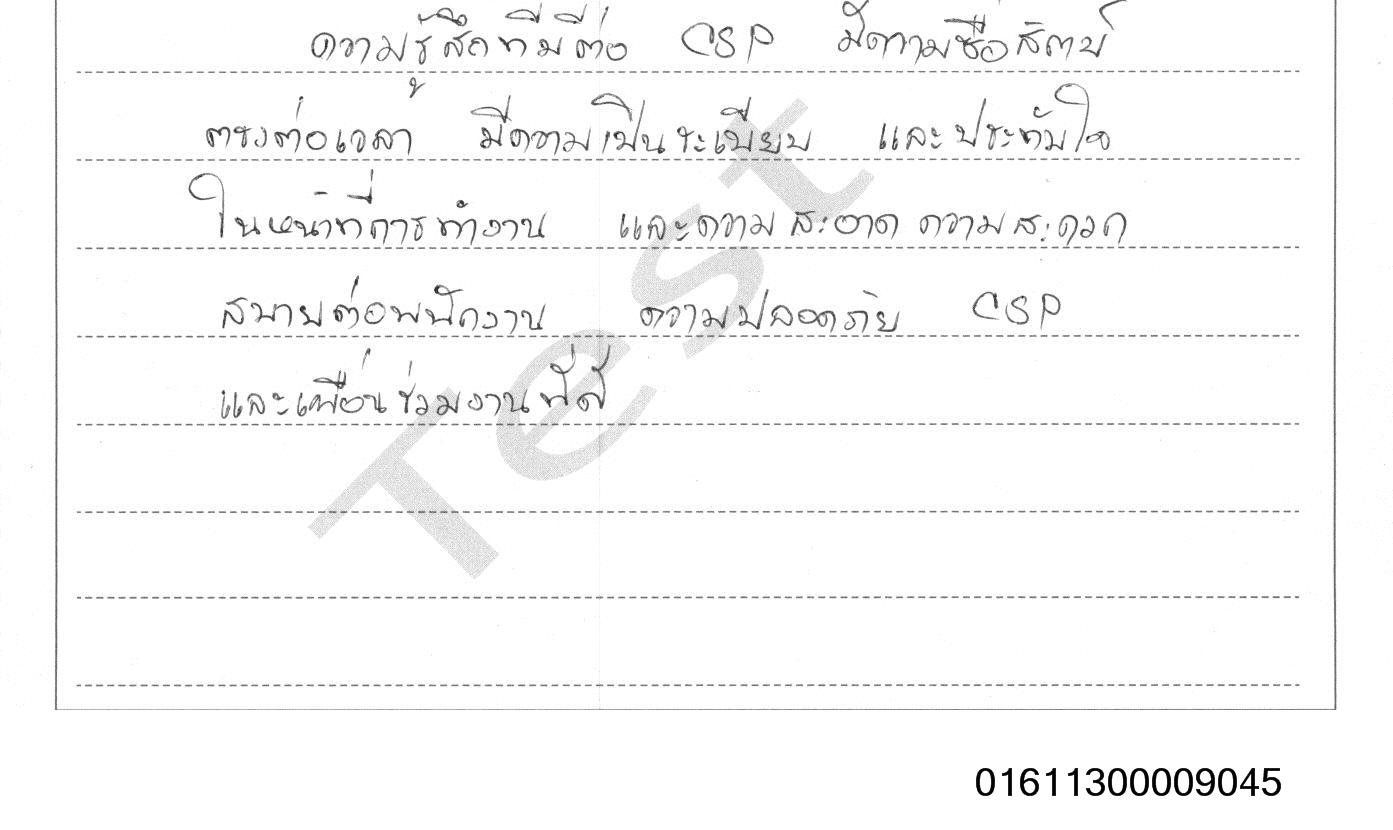 ความรู้สึกที่มีต่อ CSP มีความซื่อสัตย์
ตรงต่อเวลา มีความเป็นระเบียบ และประทับใจ
ในหน้าที่การทำงาน และความสะอาด ความสะดวก
สบายต่อพนักงาน ความปลอดภัย CSP
และเพื่อนร่วมงานที่ดี
Test
01611300009045